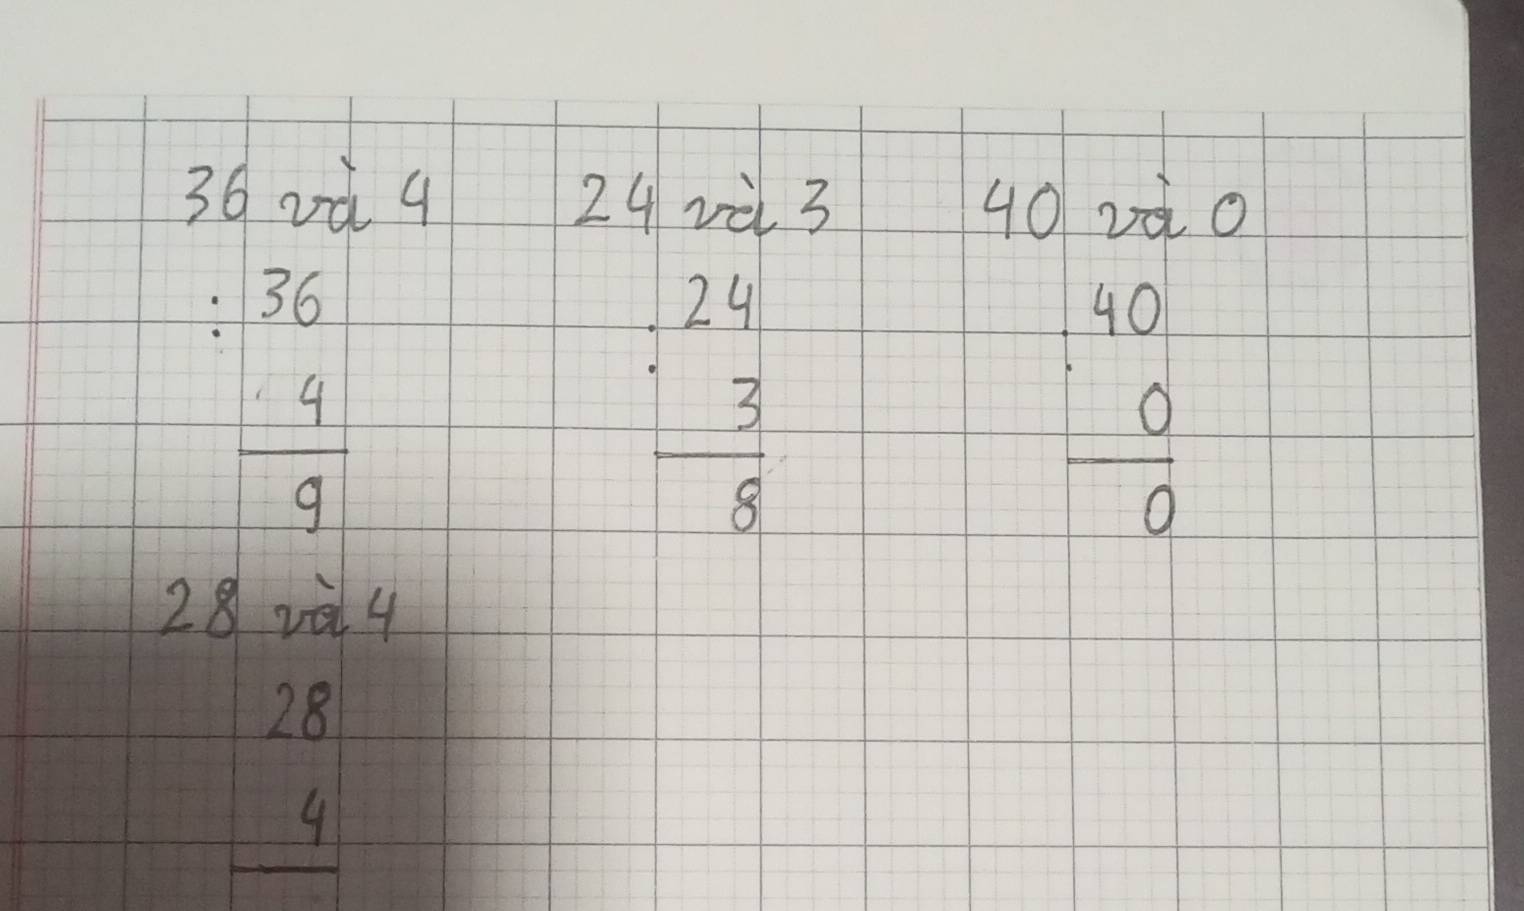 36 và 4 24 và 3 40 và 0
: 36 : 24 : 40
4 3 0
9 8 0
28 và 4
28
4